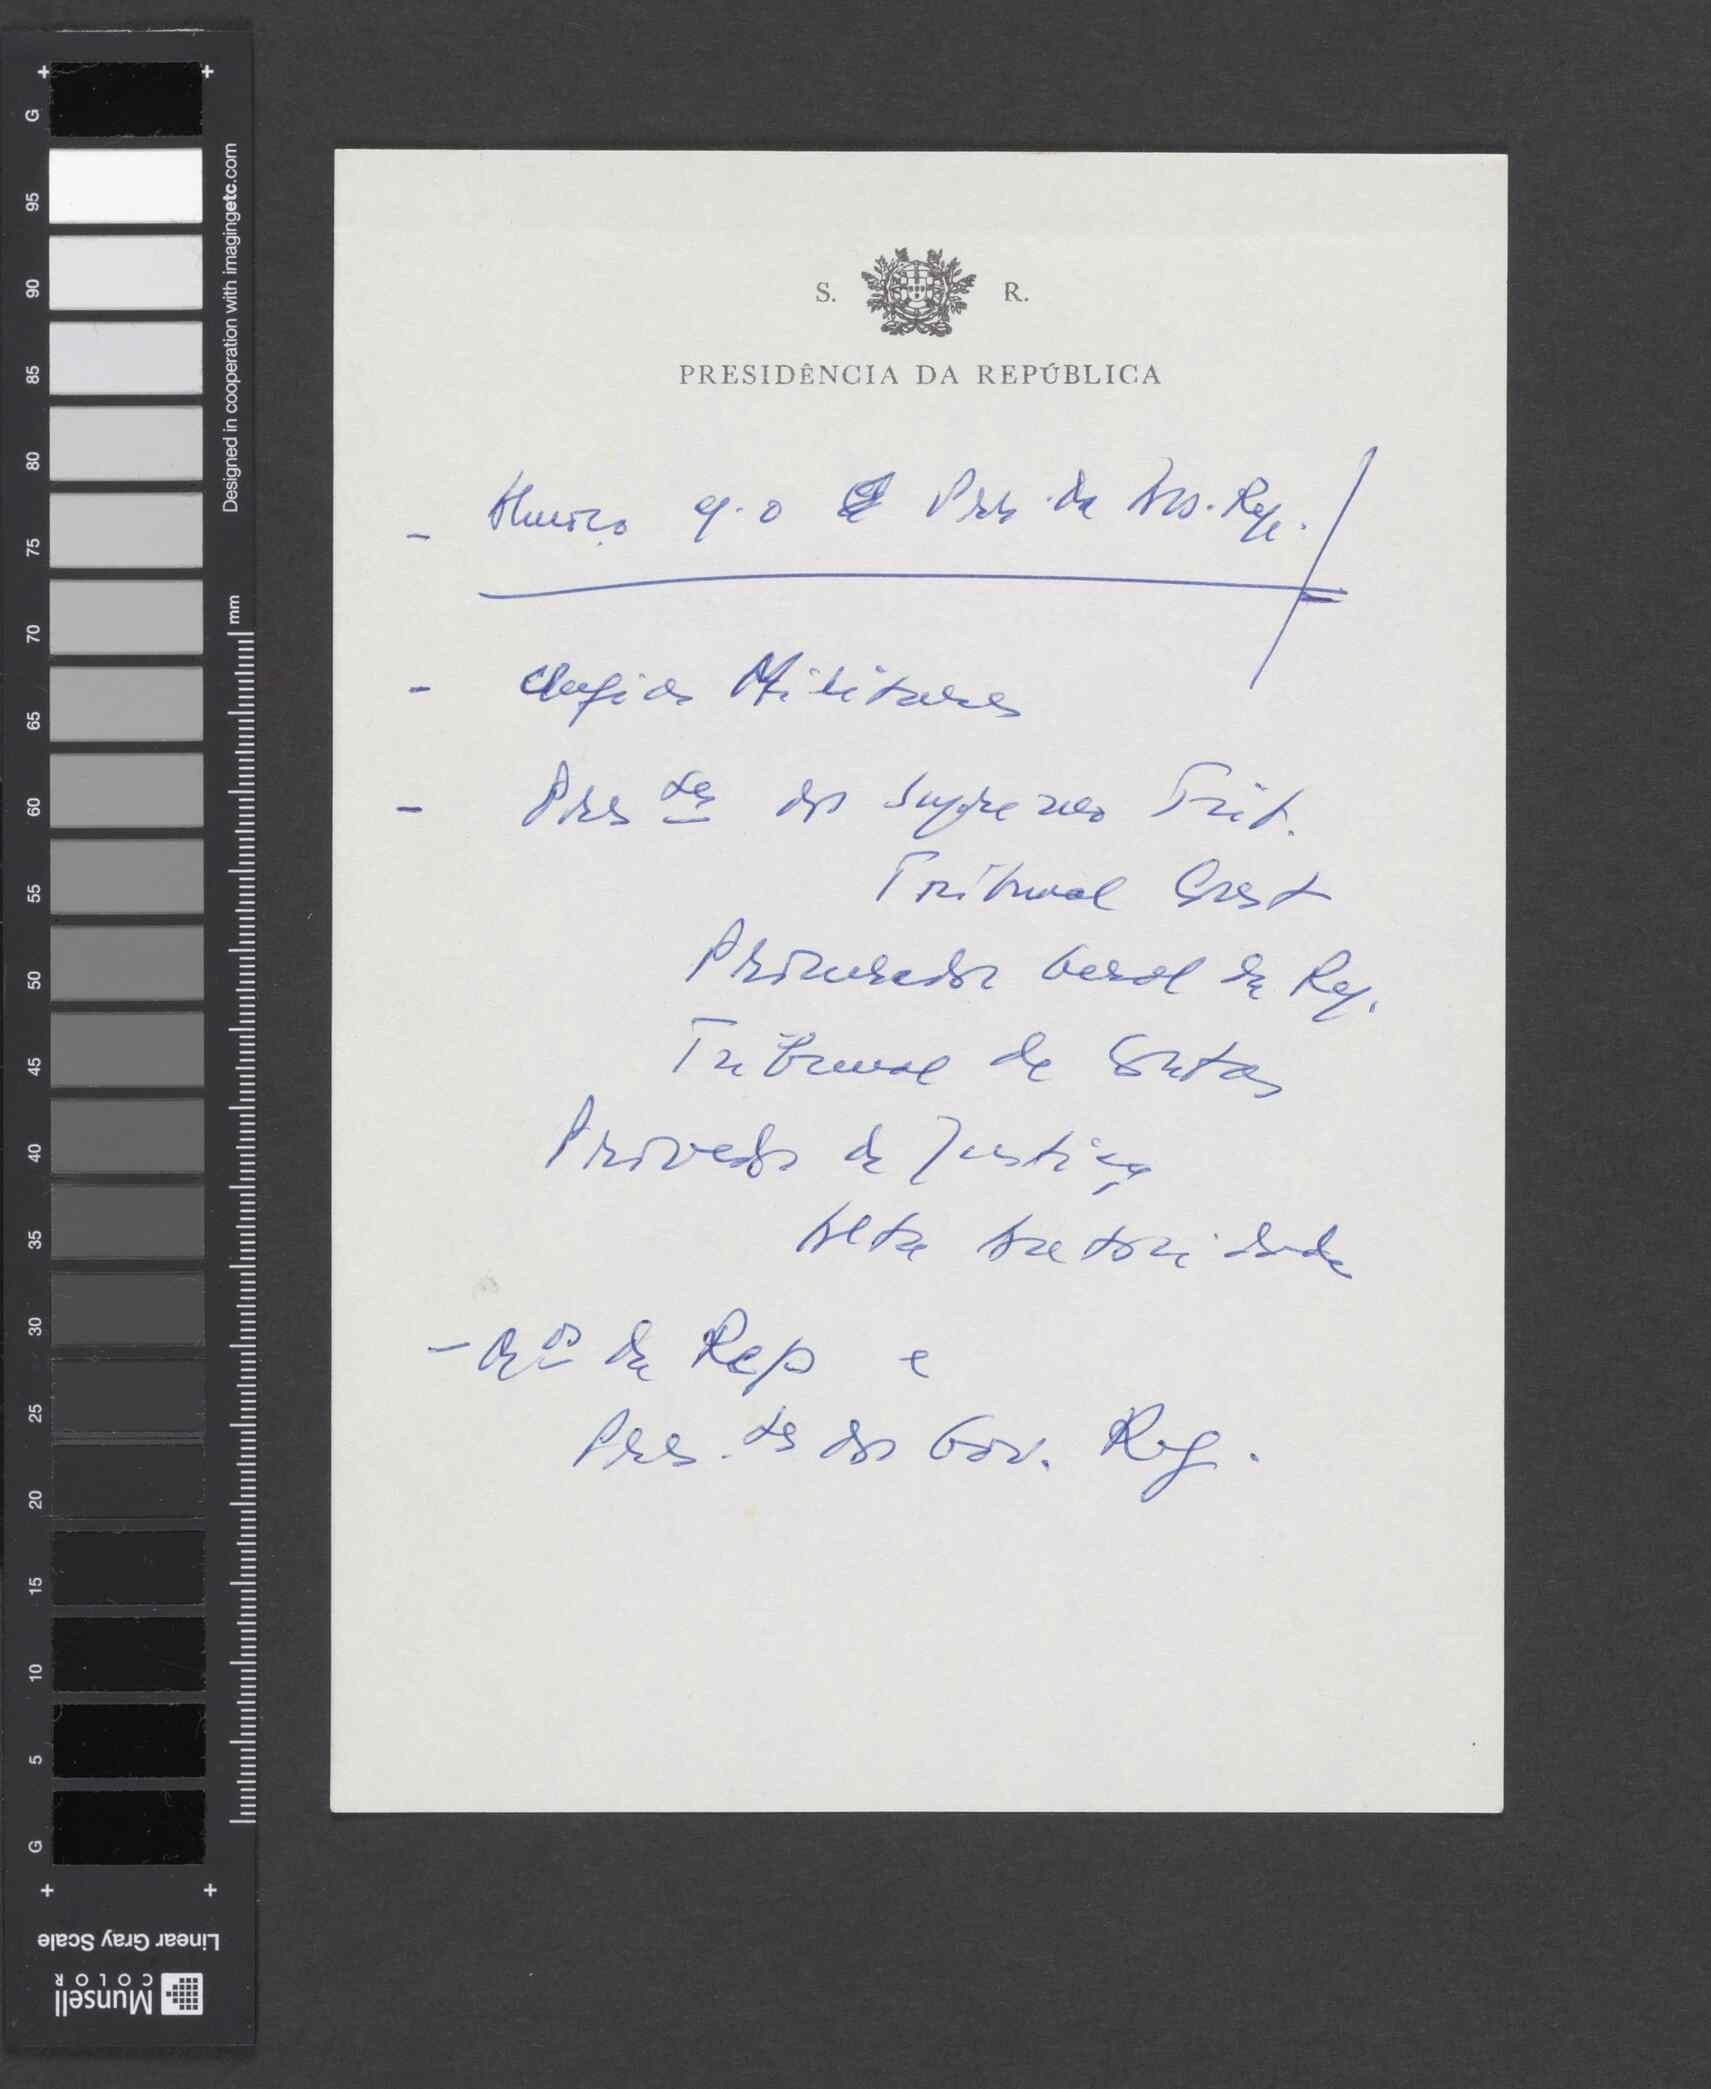 S. R.
PRESIDÊNCIA DA REPÚBLICA
- Almoço q. o Pres. da Ass. Rep.
- Chefias Militares
- Pres tes do Supremo Trib.
Tribunal Const
Procurador Geral da Rep.
Tribunal de Contas
Provedor de Justiça
Alta Autoridade
- da Rep e
Pres. tes dos Gov. Reg.
G
95
90
85
80
75
70
65
60
55
50
45
40
35
30
25
20
15
10
5
G
Designed in cooperation with imagingetc.com
mm
Linear Gray Scale
Munsell
COLOR